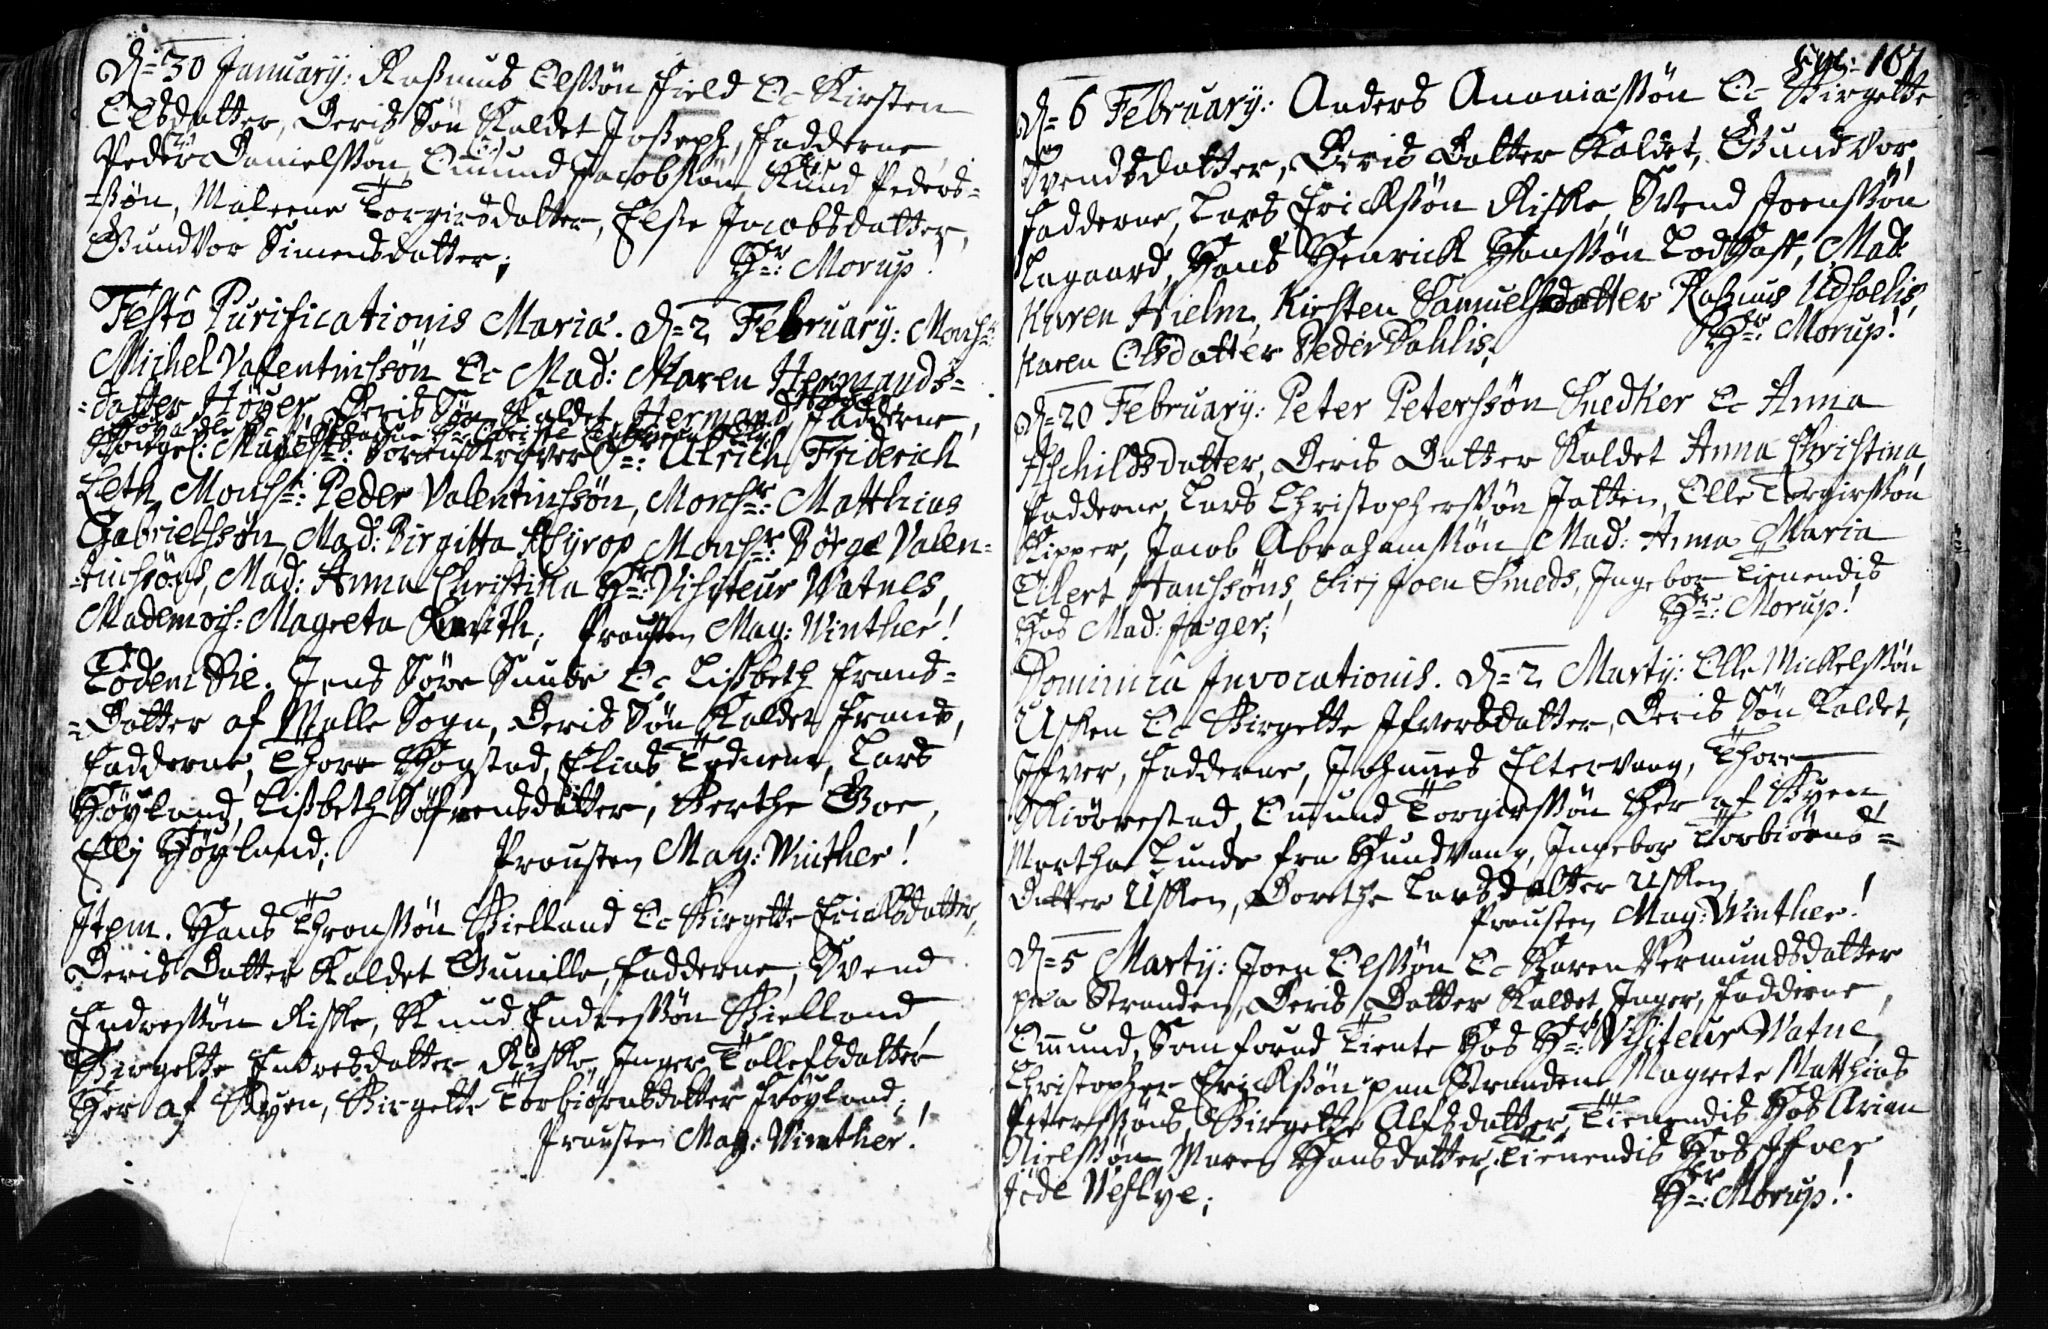 D= 30 January: Rasmus Olssøn Field Oc Kirsten
Olsdatter, Deris Søn Kaldet Joseph, Fadderne
Peder Danielssøn, Omund Jacobssøn Knud Peders=
=søn, Maleene Torgirsdatter, Else Jacobsdatter,
Gundvor Simensdatter; Hr: Morup!
Festô Purificationis Mariæ. D= 2 February: Monsr:
Michel Valentinssøn Oc Mad: Maren Hermands=
=datter Høyer, Deris Søn Kaldet Hermand, Fadderne,
Kongel: Mayests: Sorenskriver Sr: Ulrich Friderich
Leth, Monsr: Peder Valentinssøn, Monsr: Matthias
Gabrielssøn, Mad: Birgitta Monsr: Børge Valen=
=tinssøns, Mad: Anna Christina Hr: Visiteur Vatnes,
Mademois: Magreta Prousten Mag: Winther!
Eodem Die. Jens Søre Sunde Oc Lisbeth Frands=
=Datter af Malle Sogn, Deris Søn Kaldet Frands,
Fadderne, Thore Høgstad, Elias Lars
Høyland, Lisbeth Søfrensdatter, Berthe Goe,
Elj Høyland; Prousten Mag: Winther!
Item. Hans Thronssøn Bielland Oc Birgette Ericksdatter,
Deris Datter Kaldet Gunille, Fadderne, Svend
Endressøn Riske, Knud Endressøn Bielland,
Birgette Endresdatter Riske, Inger Tollefsdatter
Her af Byen, Birgette Torbiørnsdatter Frøyland;
Prousten Mag: Winther!
167
D= 6 February: Anders Ananiassøn Oc Birgette
Svendsdatter, Deris Datter Kaldet, Gundvor,
Fadderne, Lars Erickssøn Riske, Svend Joenssøn
Lagaard, Hans Henrick Hanssøn Mad:
Karen Hielm, Kirsten Samuelsdatter Rasmus
Karen Olsdatter Peder Dahlis; Hr: Morup!
D= 20 February: Peter Peterssøn Snedker Oc Anna
Aschildsdatter, Deris Datter Kaldet Anna Christina,
Fadderne, Lars Christopherssøn Jatten, Olle Torgirssøn
Kipper, Jacob Abrahamssøn Mad: Anna Maria
Ellert Hanssøns, Siri Joen Smeds, Ingebor Tienendis
Hos Mad: Jæger; Hr: Morup!
Dominica Invocationis. D= 2 Martij: Olle Mickelssøn
Usken Oc Birgette Ifversdatter, Deris Søn Kaldet,
Iffver, Fadderne, Johannes Eltervaag, Thore
Omund Torgirssøn Her af Byen,
Martha Lunde fra Hundvaag, Ingebor Torbiørns=
Datter Usken, Dorethe Larsdatter Usken
Prousten Mag: Winther!
D= 5 Martij: Joen Olssøn Oc Karen Vermundsdatter
paa Stranden, Deris Datter Kaldet Inger, Fadderne,
Omund, Som forud Tiente Hos Hr: Visiteur Watne,
Christopher Erickssøn paa Stranden, Magrete Matthias
Peterssøns, Birgette Alfsdatter, Tienendis Hos Arian
Nielssøn, Maren Hansdatter, Tienendis Hos Iffver
Jæde Vestlye; Hr: Morup!